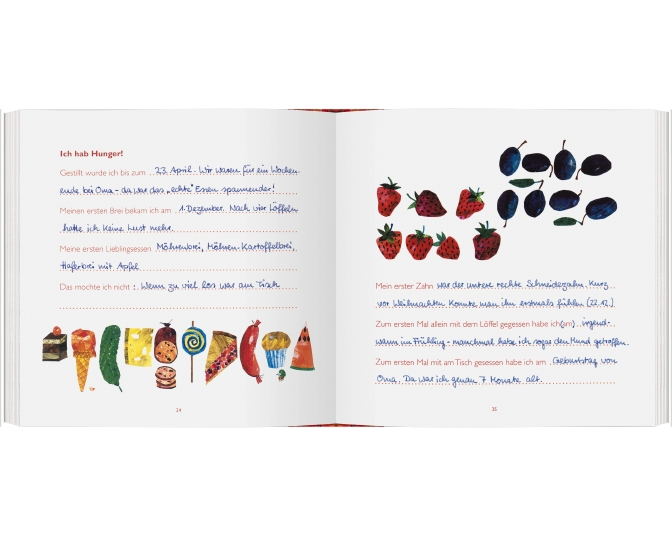 Ich hab Hunger!
Gestillt wurde ich bis zum 23. April. Wir waren für ein Wochen-
ende bei Oma - da war das „echte" Essen spannender!
Meinen ersten Brei bekam ich am 1. Dezember. Nach vier Löffeln
hatte ich keine Lust mehr.
Meine ersten Lieblingsessen Möhrenbrei, Möhren-Kartoffelbrei,
Haferbrei mit Apfel
Das mochte ich nicht: Wenn zu viel los war am Tisch
24
Mein erster Zahn war der untere rechte Schneidezahn. Kurz
vor Weihnachten konnte man ihn erstmals fühlen (22.12.)
Zum ersten Mal allein mit dem Löffel gegessen habe ich (am) irgend-
wann im Frühling - manchmal habe ich sogar den Mund getroffen.
Zum ersten Mal mit am Tisch gesessen habe ich am Geburtstag von
Oma. Da war ich genau 7 Monate alt.
25